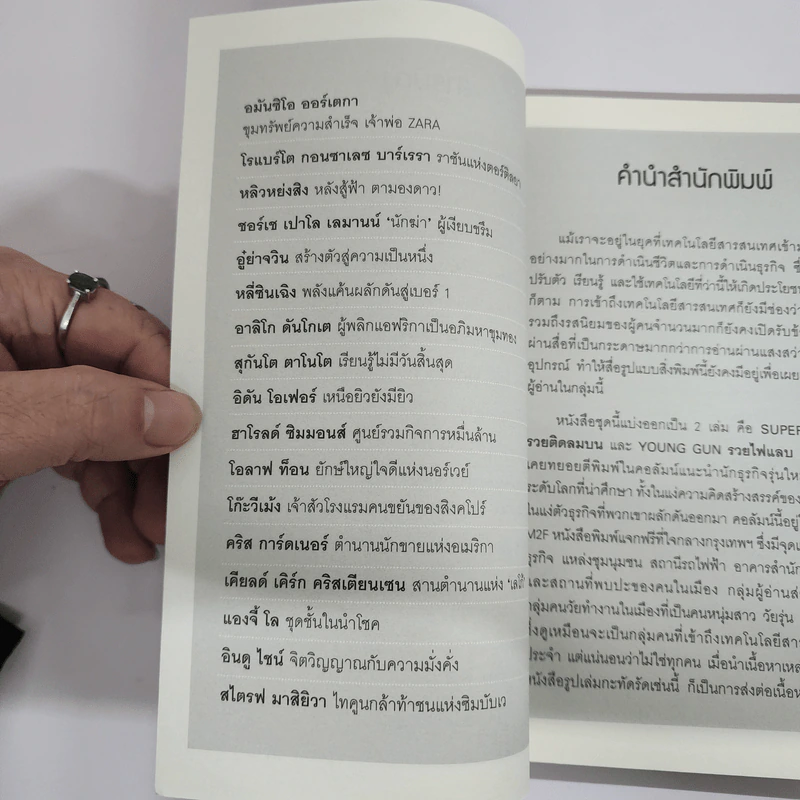 อมันซิโอ ออร์เตกา
ขุมทรัพย์ความสำเร็จ เจ้าพ่อ ZARA
โรแบร์โต กอนซาเลซ บาร์เรรา ราชันแห่งตอร์ติลยา
หลิวหย่งสิง หลังสู้ฟ้า ตามองดาว!
ซอร์เซ เปาโล เลมานน์ ‘นักฆ่า’ ผู้เงียบขรึม
อู๋ย่าจวิน สร้างตัวสู่ความเป็นหนึ่ง
หลี่ซินเฉิง พลังแค้นผลักดันสู่เบอร์ 1
อาลิโก ดันโกเต ผู้พลิกแอฟริกาเป็นอภิมหาขุมทอง
สุกันโต ตาโนโต เรียนรู้ไม่มีวันสิ้นสุด
อิดัน โอเฟอร์ เหนือยิวยังมียิว
ฮาโรลด์ ซิมมอนส์ ศูนย์รวมกิจการหมื่นล้าน
โอลาฟ ท็อน ยักษ์ใหญ่ใจดีแห่งนอร์เวย์
โก๊ะวีเม้ง เจ้าสัวโรงแรมคนขยันของสิงคโปร์
คริส การ์ดเนอร์ ตำนานนักขายแห่งอเมริกา
เคียลด์ เคิร์ก คริสเตียนเซน สานตำนานแห่ง
แองจี้ โล ชุดชั้นในนำโชค
อินดู ไชน์ จิตวิญญาณกับความมั่งคั่ง
สไตรฟ มาสิยิวา ไทคูนกล้าท้าชนแห่งซิมบับเว
คำนำสำนักพิมพ์
แม้เราจะอยู่ในยุคที่เทคโนโลยีสารสนเทศเข้ามา
อย่างมากในการดำเนินชีวิตและการดำเนินธุรกิจ
ปรับตัว เรียนรู้ และใช้เทคโนโลยีที่ว่านี้ให้เกิดประโยชน์
ก็ตาม การเข้าถึงเทคโนโลยีสารสนเทศก็ยังมีช่องว่าง
รวมถึงรสนิยมของผู้คนจำนวนมากก็ยังคงเปิดรับ
ผ่านสื่อที่เป็นกระดาษมากกว่าการอ่านผ่านแสงสว่าง
อุปกรณ์ ทำให้สื่อรูปแบบสิ่งพิมพ์นี้ยังคงมีอยู่เพื่อเผย
ผู้อ่านในกลุ่มนี้
หนังสือชุดนี้แบ่งออกเป็น 2 เล่ม คือ SUPER
รวยติดลมบน และ YOUNG GUN รวยไฟแลบ
เคยทยอยตีพิมพ์ในคอลัมน์แนะนำนักธุรกิจรุ่นใหม่
ระดับโลกที่น่าศึกษา ทั้งในแง่ความคิดสร้างสรรค์ของ
ในแง่ตัวธุรกิจที่พวกเขาผลักดันออกมา คอลัมน์นี้อยู่
M2F หนังสือพิมพ์แจกฟรีที่ใจกลางกรุงเทพฯ ซึ่งมีจุด
ธุรกิจ แหล่งชุมนุมชน สถานีรถไฟฟ้า อาคารสำนัก
และสถานที่พบปะของคนในเมือง กลุ่มผู้อ่าน
กลุ่มคนวัยทำงานในเมืองที่เป็นคนหนุ่มสาว วัยรุ่น
ซึ่งดูเหมือนจะเป็นกลุ่มคนที่เข้าถึงเทคโนโลยีสาร
ประจำ แต่แน่นอนว่าไม่ใช่ทุกคน เมื่อนำเนื้อหาเหล่า
หนังสือรูปเล่มกะทัดรัดเช่นนี้ ก็เป็นการส่งต่อเนื้อหา